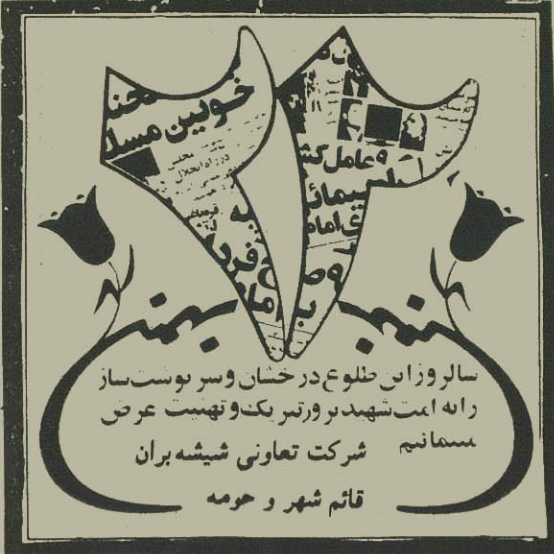 ۲۲
خونین مسل
عامل کش
بهمن
بهمن
سالروز این طلوع درخشان و سرنوشت ساز
را به امت شهید پرور تبریک و تهنیت عرض
مینمائیم
شرکت تعاونی شیشه بران
قائم شهر و حومه